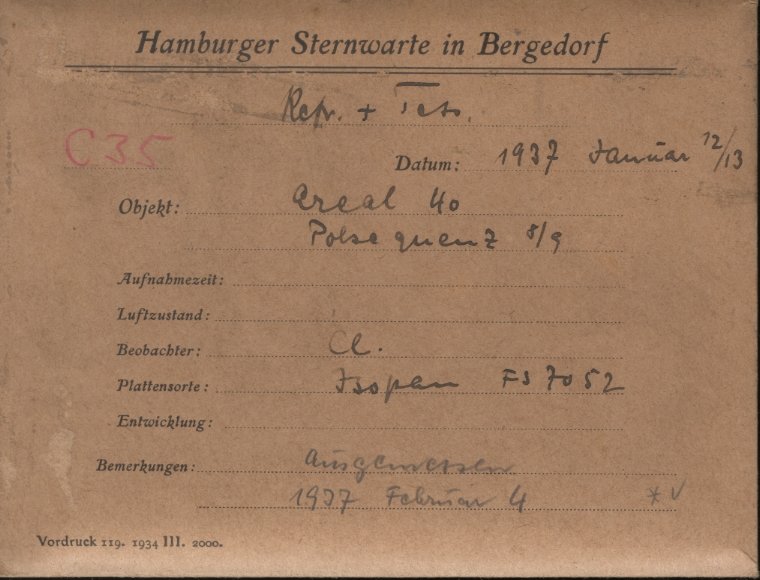 Hamburger Sternwarte in Bergedorf
Repr. + Tess.
C 35
Datum: 1937 Januar 12/13
Objekt: Areal 40
Polsequenz 8/9
Aufnahmezeit:
Luftzustand:
Beobachter: Cl.
Plattensorte: Isopan FS 7052
Entwicklung:
Bemerkungen: Ausgemessen
1937 Februar 4 * √
Vordruck 119. 1934 III. 2000.